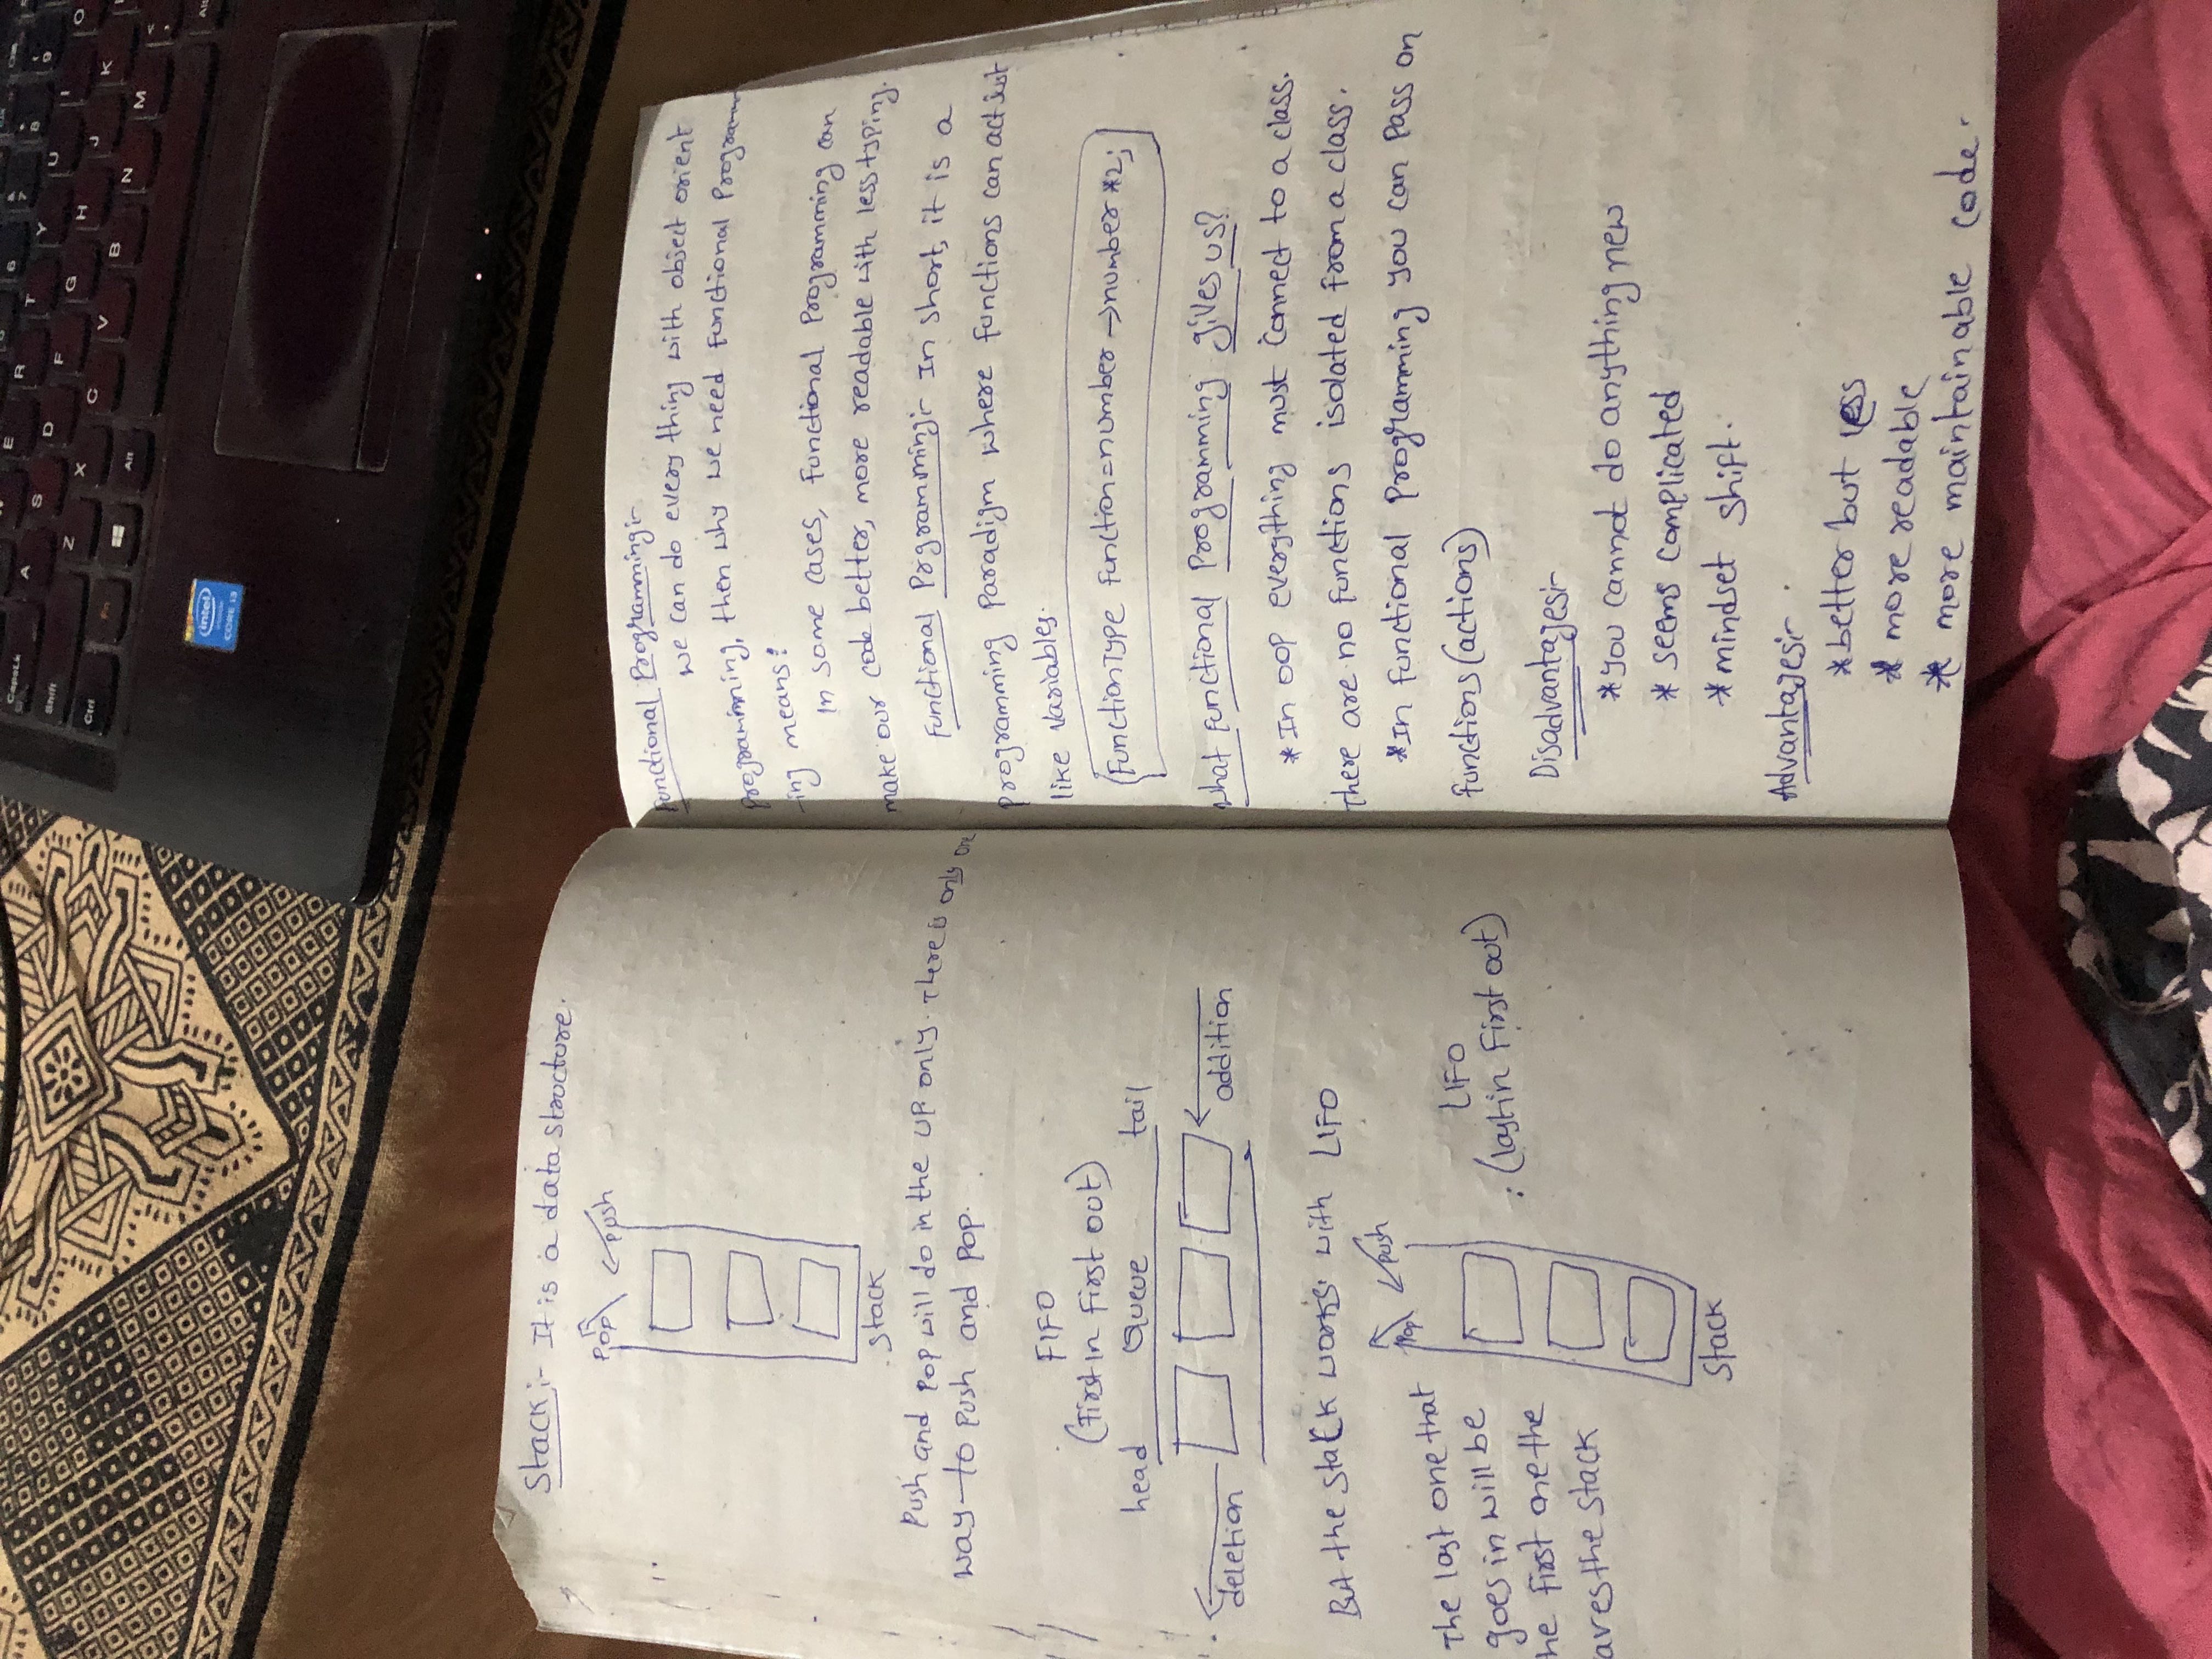 CapsLk
A
S
D
F
G
H
J
K
E
R
T
Y
U
I
O
6
7
8
9
Shift
Z
X
C
V
B
N
M
Ctrl
Fn
Alt
intel
inside
CORE i3
Stack:- It is a data structure.
Pop push
Stack
Push and pop will do in the up only. There is only one
way to push and pop.
FIFO
(First in First out)
head Queue tail
deletion addition
But the stack works with LIFO
pop push
The last one that
goes in will be
he first one the
aves the stack
LIFO
(last in First out)
Stack
Functional Programming:-
we can do every thing with object orient
programming, then why we need functional Programm
-ing means:
In some cases, functional Programming can
make our code better, more readable with less typing.
Functional Prgramming:- In short, it is a
programming Paradigm where functions can act just
like variables.
FunctionType function=number->number*2;
What functional Programming gives us?
*In OOP everything must connect to a class.
There are no functions isolated from a class.
*In functional programming you can Pass on
functions (actions)
Disadvantages:-
*you cannot do anything new
* seems complicated
*mindset shift.
Advantages:-
*better but less
* more readable
* more maintainable code.